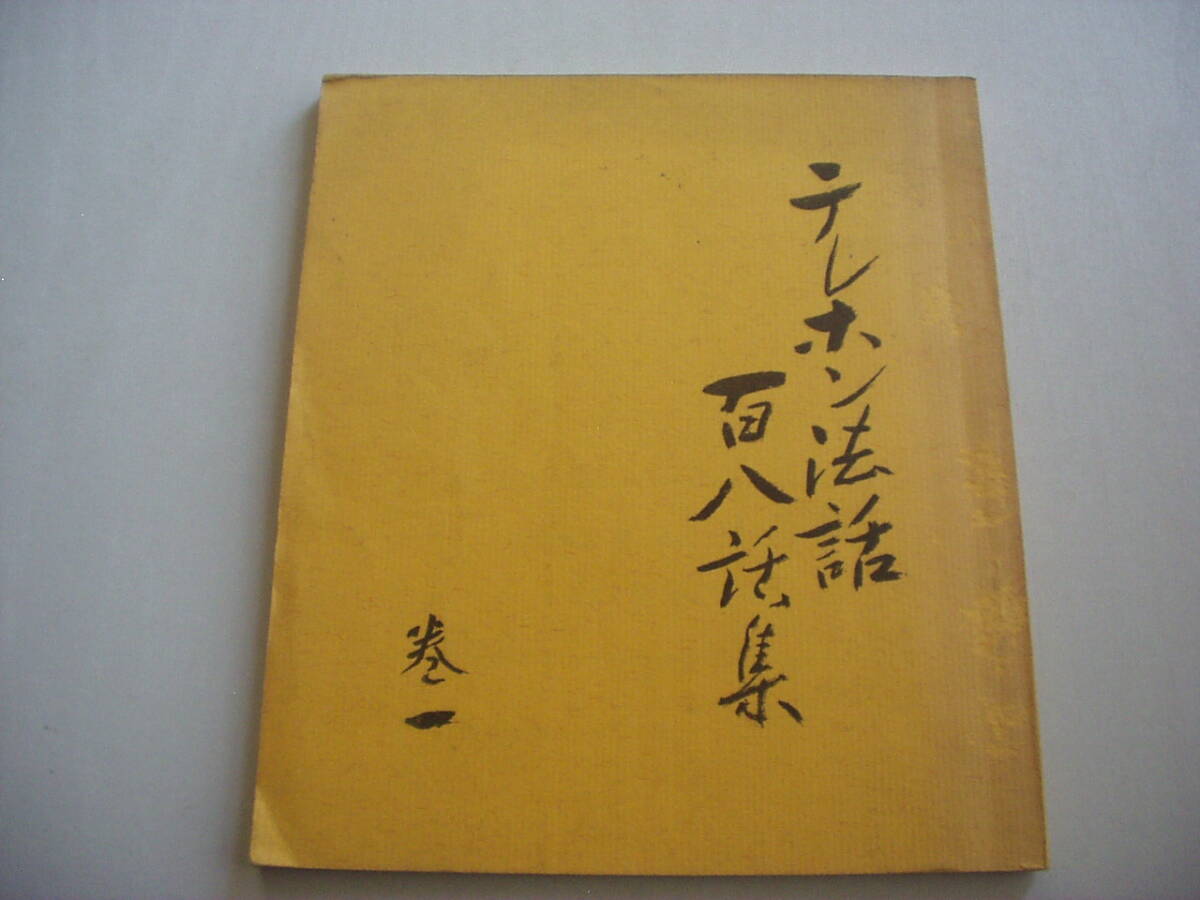 テレホン法話
百八話集
巻一